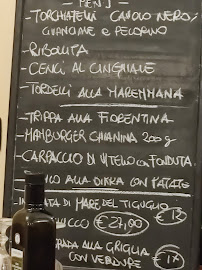 MENÙ
-TORCHIATELLI CAVOLO NERO,
GUANCIALE E PECORINO
-RIBOLLITA
-CENCI AL CINGHIALE
-TORDELLI ALLA MAREMMANA
-TRIPPA ALLA FIORENTINA
-HAMBURGER CHIANINA 200g
-CARPACCIO DI VITELLO CON FONDUTA
ALLA CON PATATE
DI MARE DEL TIGULLIO €18
€27,00
ALLA GRIGLIA
CON VERDURE €17